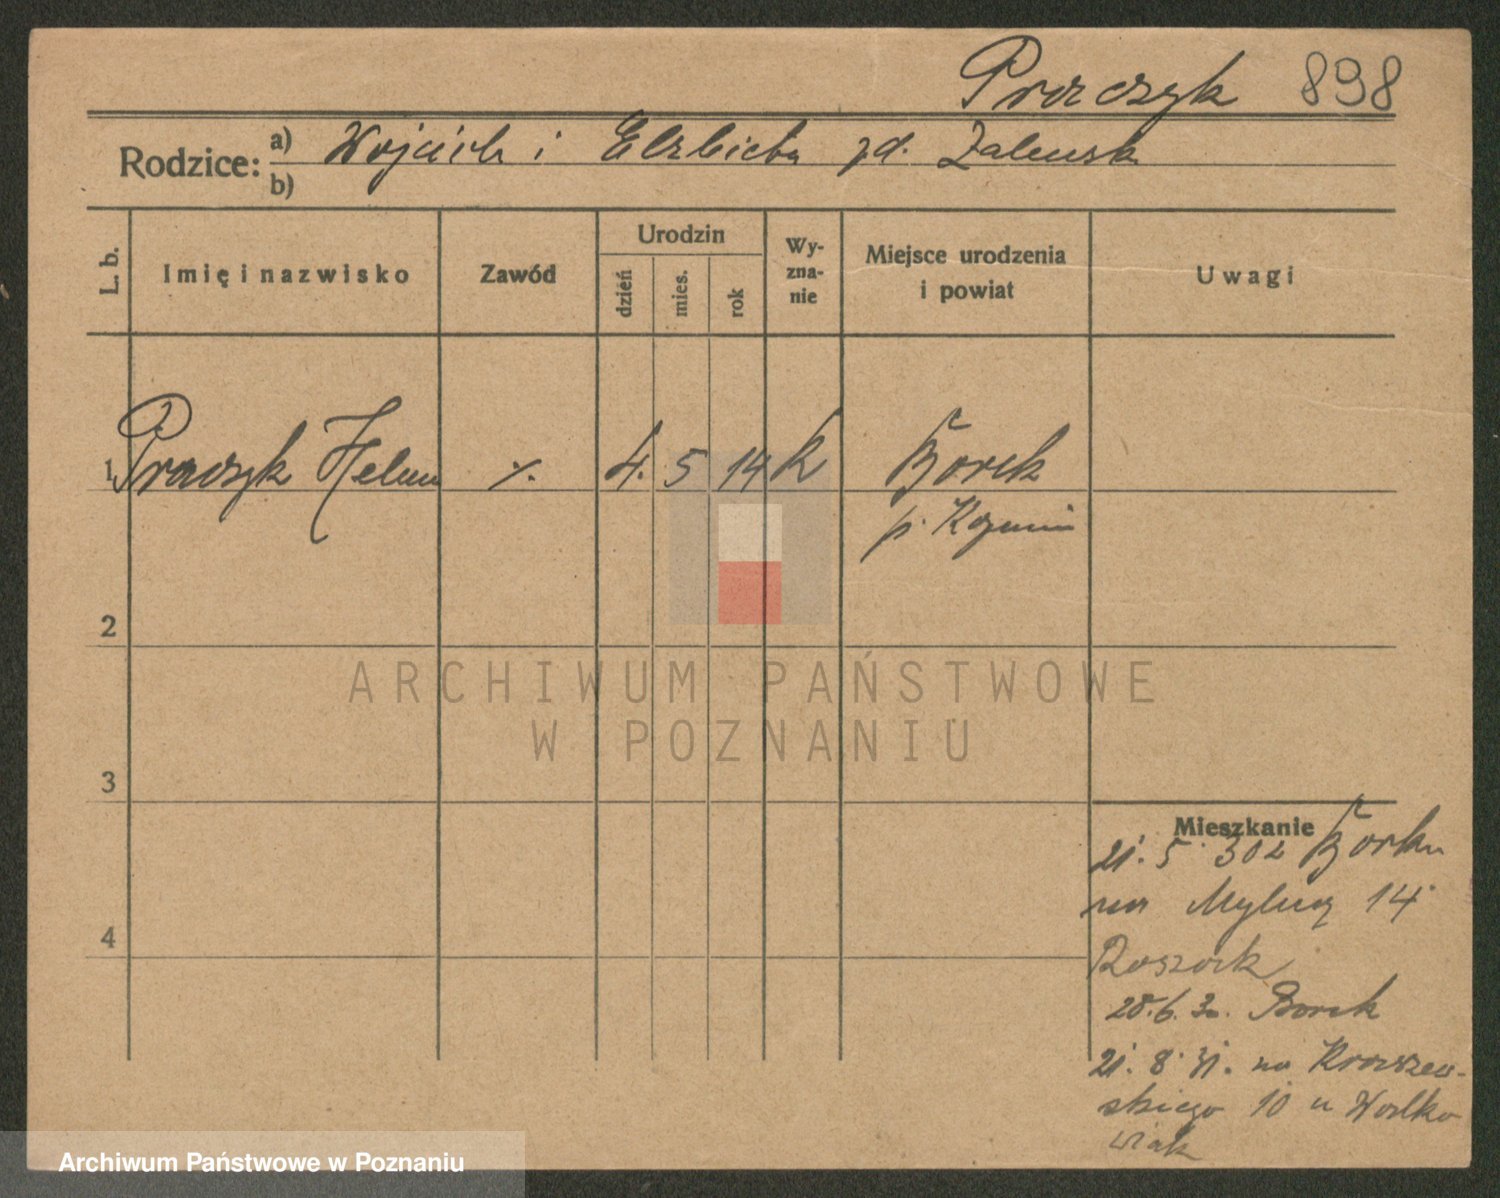 Praczyk 898
Rodzice: a) Wojciech i Elżbieta zd. Zalewsk
b)
L. b. Imię i nazwisko Zawód Urodzin dzień mies. rok Wy-zna-nie Miejsce urodzenia i powiat Uwagi
1 Praczyk Helena ٪. 4. 5 14 k Borek
p. Koźmin
2
3
Mieszkanie
21. 5 30 z Borku
na Mylną 14
4
Roszak
28. 6. 30. Borek
21. 8. 31. na Kraszew-
skiego 10 u Walko
wiak
ARCHIWUM PAŃSTWOWE
W POZNANIU
Archiwum Państwowe w Poznaniu